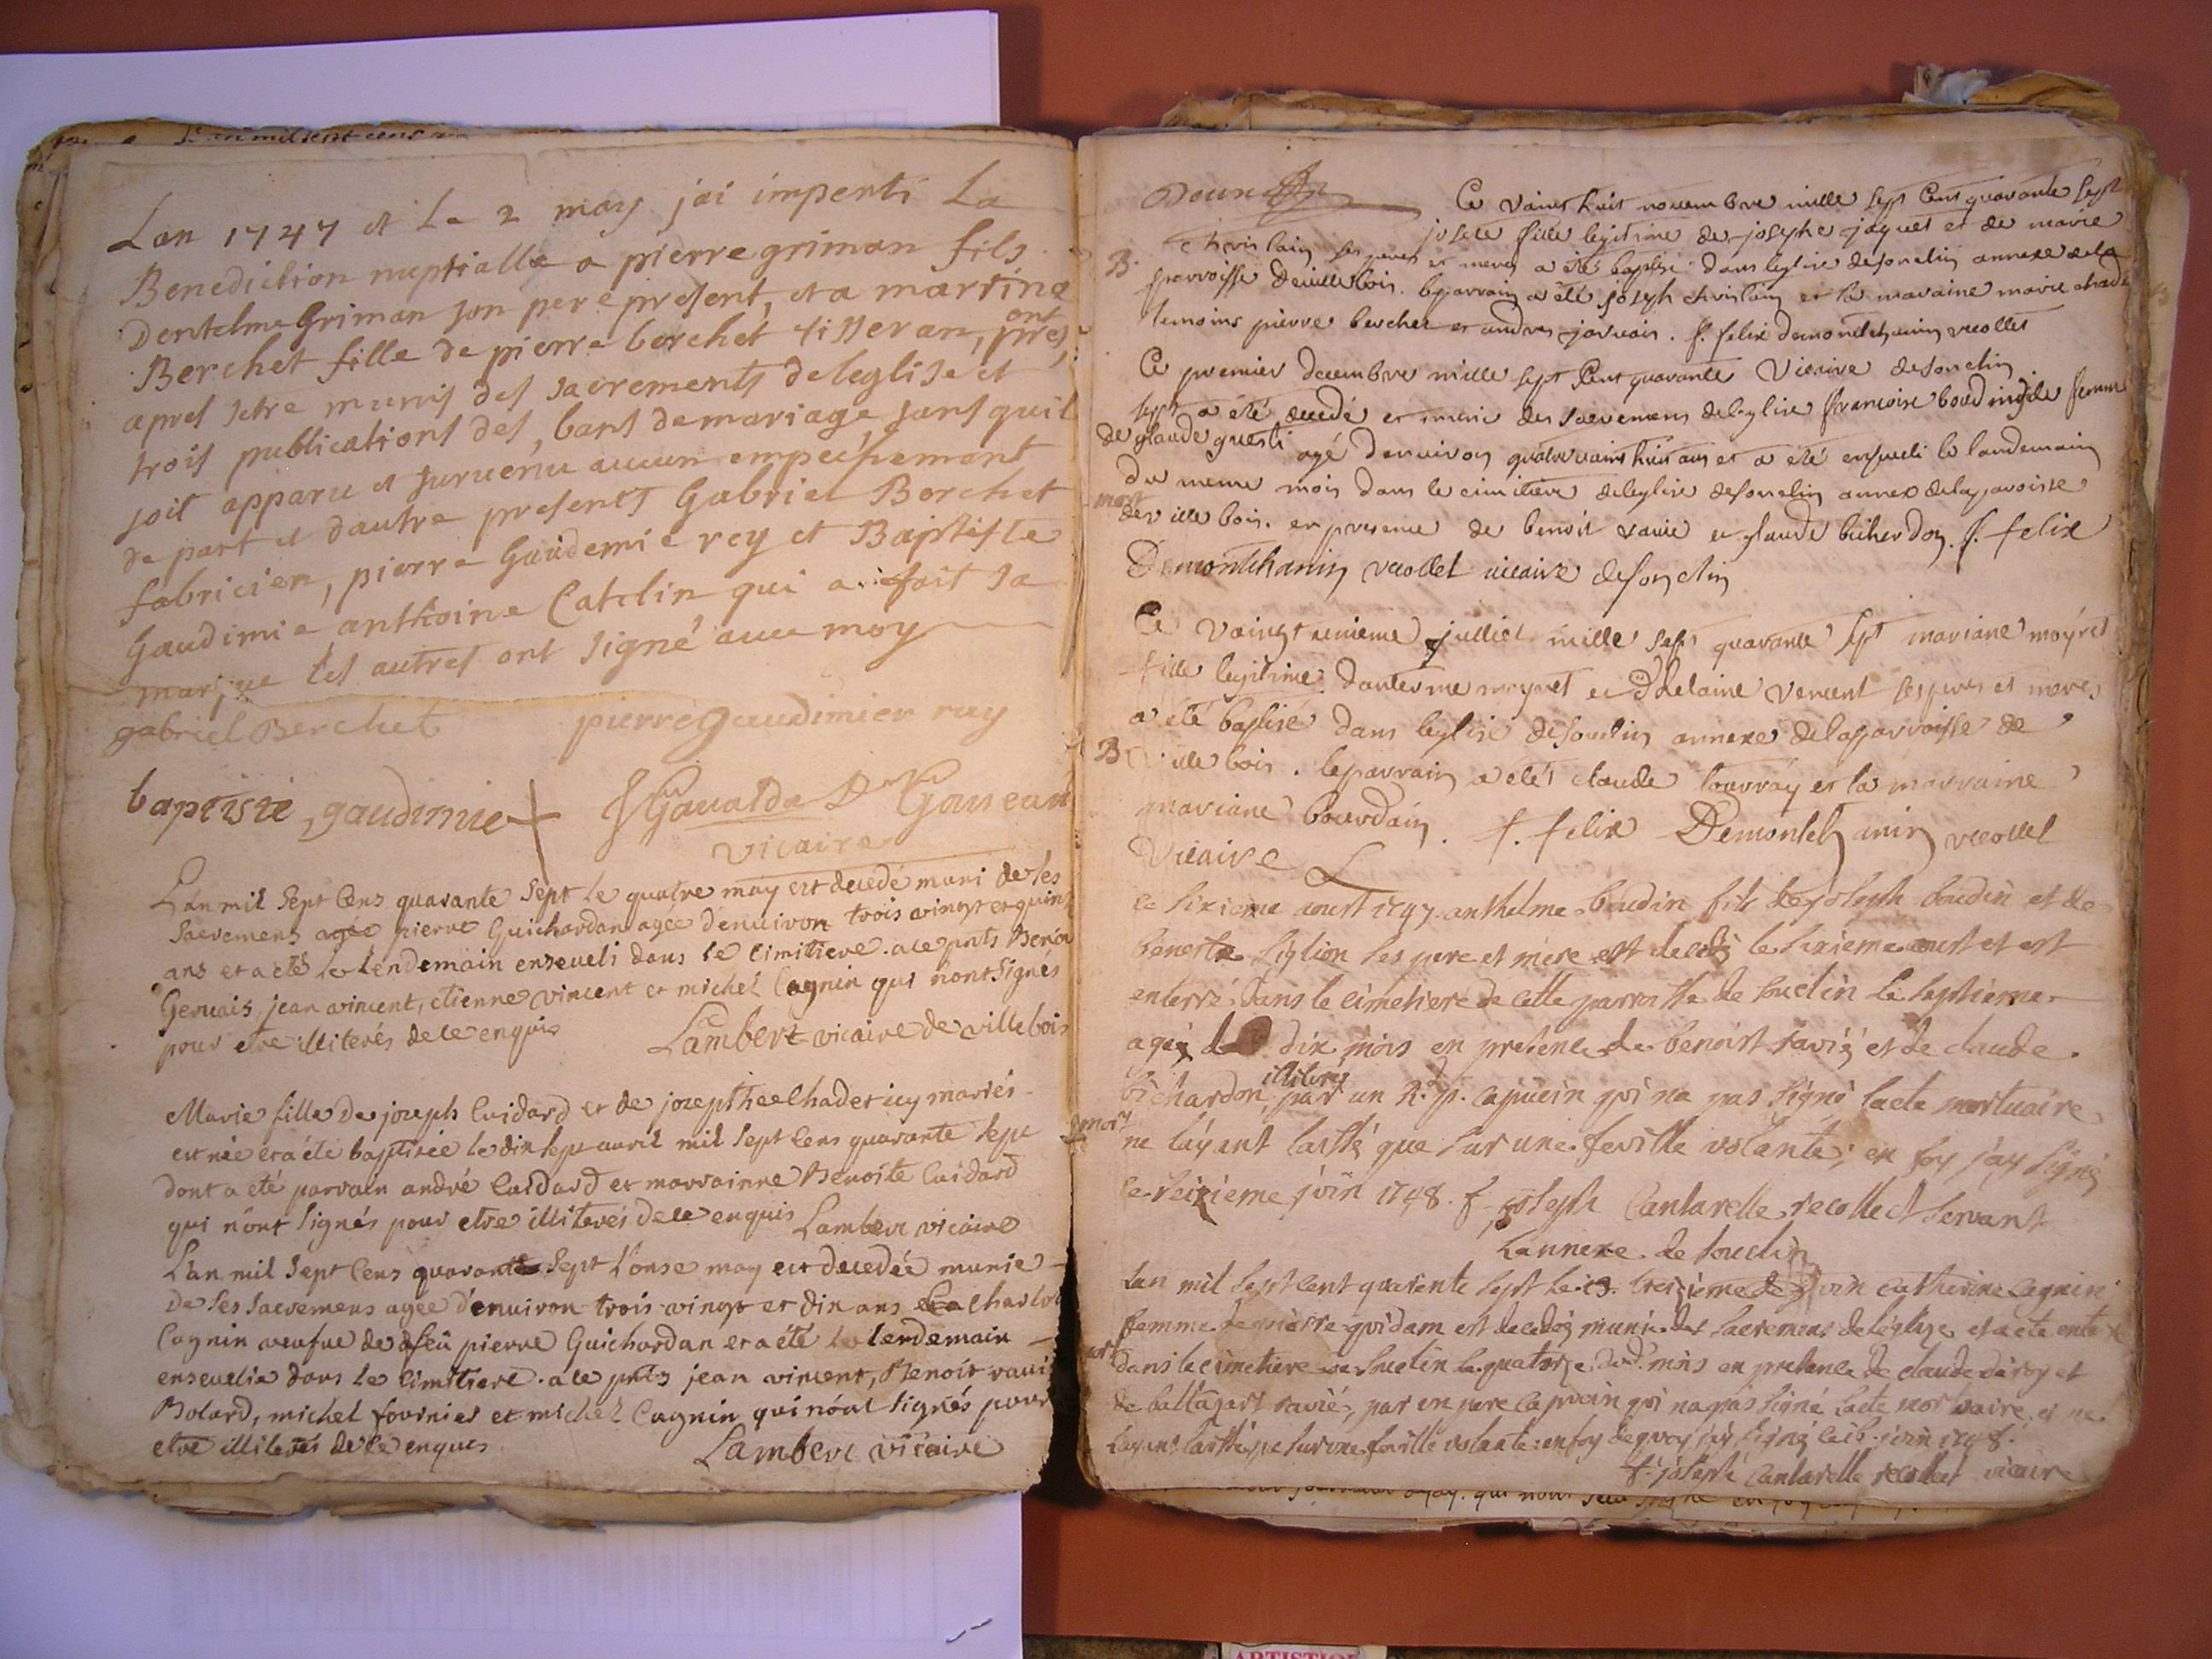 Lan 1747 et Le 2 may jai imperti La
Benediction nuptialle a pierre griman fils
Dentelme Griman son pere present, et a martine
Berchet fille de pierre berchet tisseran, present
apres setre munis des sacrements deleglise et
trois publications des bans de mariage sans quil
soit apparu et survenu aucun empechement
de part et dautre presents Gabriel Berchet
fabricien, pierre Gaudemie rey et Baptiste
Gaudimie anthoine Catelin qui a fait sa
marque les autres ont signé avec moy
gabriel Berchet pierre gaudimier ray
baptiste gaudimie
vicaire
Lan mil Sept Cens quarante Sept le quatre may est decedé muni de ses
Sacremens agée pierre Guichardan agée denuiron trois vingt et quinze
ans et a eté le lendemain enseveli dans le cimitiere. a ce pnts Benoi
Gervais, jean vincent, etienne vincent et michel Cagnin qui nont Signés
pour etre illiterés de ce enquis Lambert vicaire de villebois
Marie fille de joseph Cuidard et de josepthe Chadericy mariés
est née et a été baptisée le dix sept avril mil Sept Cens quarante Sept
dont a eté parrain andré Cuidard et marrainne Benoite Cuidard
qui n'ont Signés pour etre illiterés de ce enquis Lambert vicaire
L'an mil Sept Cens quarante Sept L'onse may est decedée munie
De Ses Sacremens agée d'enuiron trois vingt et dix ans
Cagnin veufve de feu pierre Guichardan et a été le lendemain
ensevelie dans le Cimitiere. a ce pnts jean vincent, Benoit ravi
Bolard, michel fournier et michel Cagnin qui n'ont Signés pour
etre illiterés de ce enques Lambert vicaire
Ce vaint huit nouembre mille sept Cent quarante sept
josete fille legitime de josephe jaquet et de marie
B. Christain ses peres et meres a été baptisé dans leglise desouclin annexe de la
parroisse deuillebois. le parrain a été joseph christain et la maraine marie
temoins pierre berchet et andres jarvais. f. felix demontchanin recollet
Ce premier decembre mille sept Cent quarante Vicaire desouclin
sept a été decedé et munie des sacremens deleglise francoise boudin femme
de glaude agé denuiron quatre vaint huit ans et a été enseveli le landemain
du meme mois dans le cimitiere deleglise desouclin annexe delaparoisse
mort deville bois. en presence de benoit ravie et glaude bichardon. f. felix
Demontchanin recollet vicaire desouclin
Ce Vaingt unieme julliet mille sept quarante sept mariane moyret
fille legitime dantesme moyret et delaine Vencent ses peres et meres
a été baptisé dans leglise desouclin annexe delapparroisse de
B ville bois. le parrain a été claude tourray et la marraine
mariane bourdain. f. felix Demontchanin recollet
Vicaire
ce sixieme aoust 1747 anthelme boudin fils de joseph boudin et de
benoite siglion ses pere et mere est decedé le sixieme aoust et est
enterré dans le cimetiere de cette parroisse de souclin Le septieme
agé de dix mois en presence de benoist ravié et de claude
bichardon, illiterés par un R. p. capucin qui na pas signé lacte mortuaire
mort ne layant laissé que sur une feuille volante; en foy jay signé
ce seizieme juin 1748. f joseph Cantarelle recollect servant
Lannexe de souclin
Lan mil sept cent quarente sept le 13 treizieme de juin catherine cagnin
femme de pierre quidam est decedée munie des sacremens de léglize et a ete enter
mort dans le cimetiere de souclin le quatorze dud. mois en presence de claude deroy et
de baltazart ravié, par un pere capucin qui na pas signé lacte mortuaire et ne
layant laissé que sur une feuille volante: en foy de quoy jay signé ce 16 juin 1748.
f. joseph Cantarelle recollect vicaire